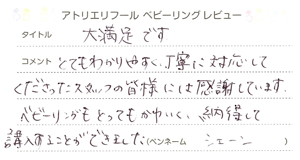 アトリエリフール ベビーリング レビュー
タイトル 大満足です
コメント とてもわかりやすく、丁寧に対応して
くださったスタッフの皆様には感謝しています。
ベビーリングもとってもかわいく、納得して
購入することができました(ペンネーム シェーン )